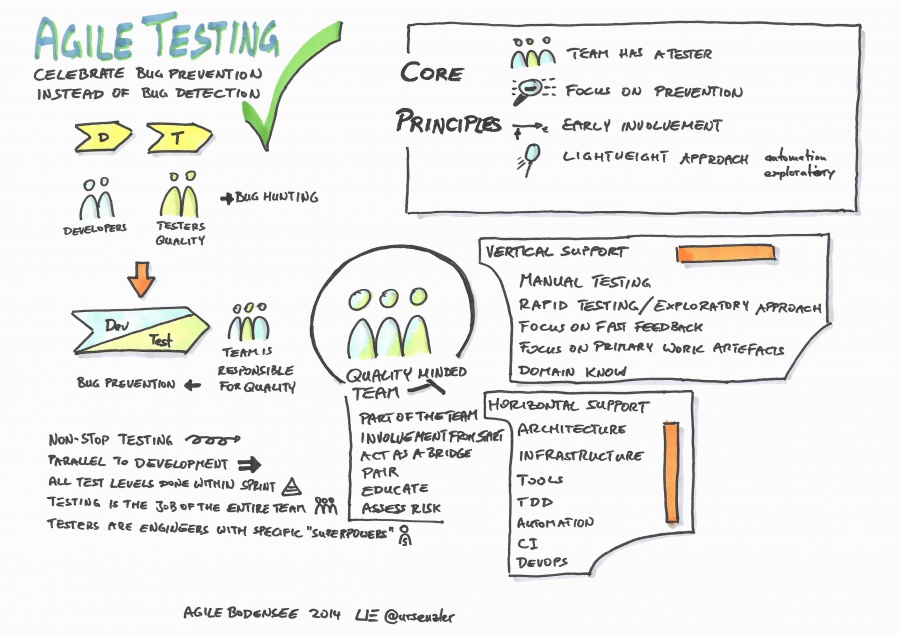 AGILE TESTING
CELEBRATE BUG PREVENTION
INSTEAD OF BUG DETECTION
D
T
DEVELOPERS
TESTERS
QUALITY
BUG HUNTING
Dev
Test
TEAM IS
RESPONSIBLE
FOR QUALITY
BUG PREVENTION
NON-STOP TESTING
PARALLEL TO DEVELOPMENT
ALL TEST LEVELS DONE WITHIN SPRINT
TESTING IS THE JOB OF THE ENTIRE TEAM
TESTERS ARE ENGINEERS WITH SPECIFIC "SUPERPOWERS"
S
CORE
PRINCIPLES
TEAM HAS A TESTER
FOCUS ON PREVENTION
EARLY INVOLVEMENT
t
LIGHTWEIGHT APPROACH
automation
exploratory
QUALITY MINDED
TEAM
PART OF THE TEAM
INVOLVEMENT FROM START
ACT AS A BRIDGE
PAIR
EDUCATE
ASSESS RISK
VERTICAL SUPPORT
MANUAL TESTING
RAPID TESTING/EXPLORATORY APPROACH
FOCUS ON FAST FEEDBACK
FOCUS ON PRIMARY WORK ARTEFACTS
DOMAIN KNOW
HORIZONTAL SUPPORT
ARCHITECTURE
INFRASTRUCTURE
TOOLS
TDD
AUTOMATION
CI
DEVOPS
AGILE BODENSEE 2014 @ursenzler